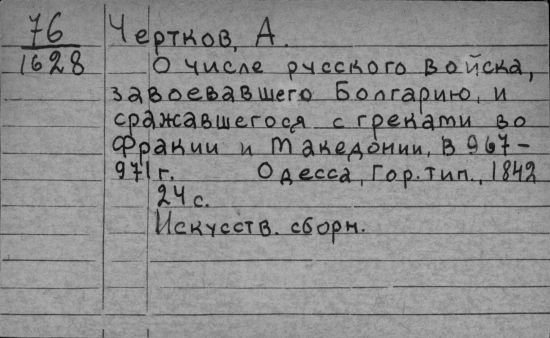 76 Чертков, А.
1628 О числе русского войска,
завоевавшего Болгарию, и
сражавшегося с греками во
Фракии и Македонии, в 967-
971 г. Одесса, Гор. тип., 1842
24 с.
Искусств. сборн.